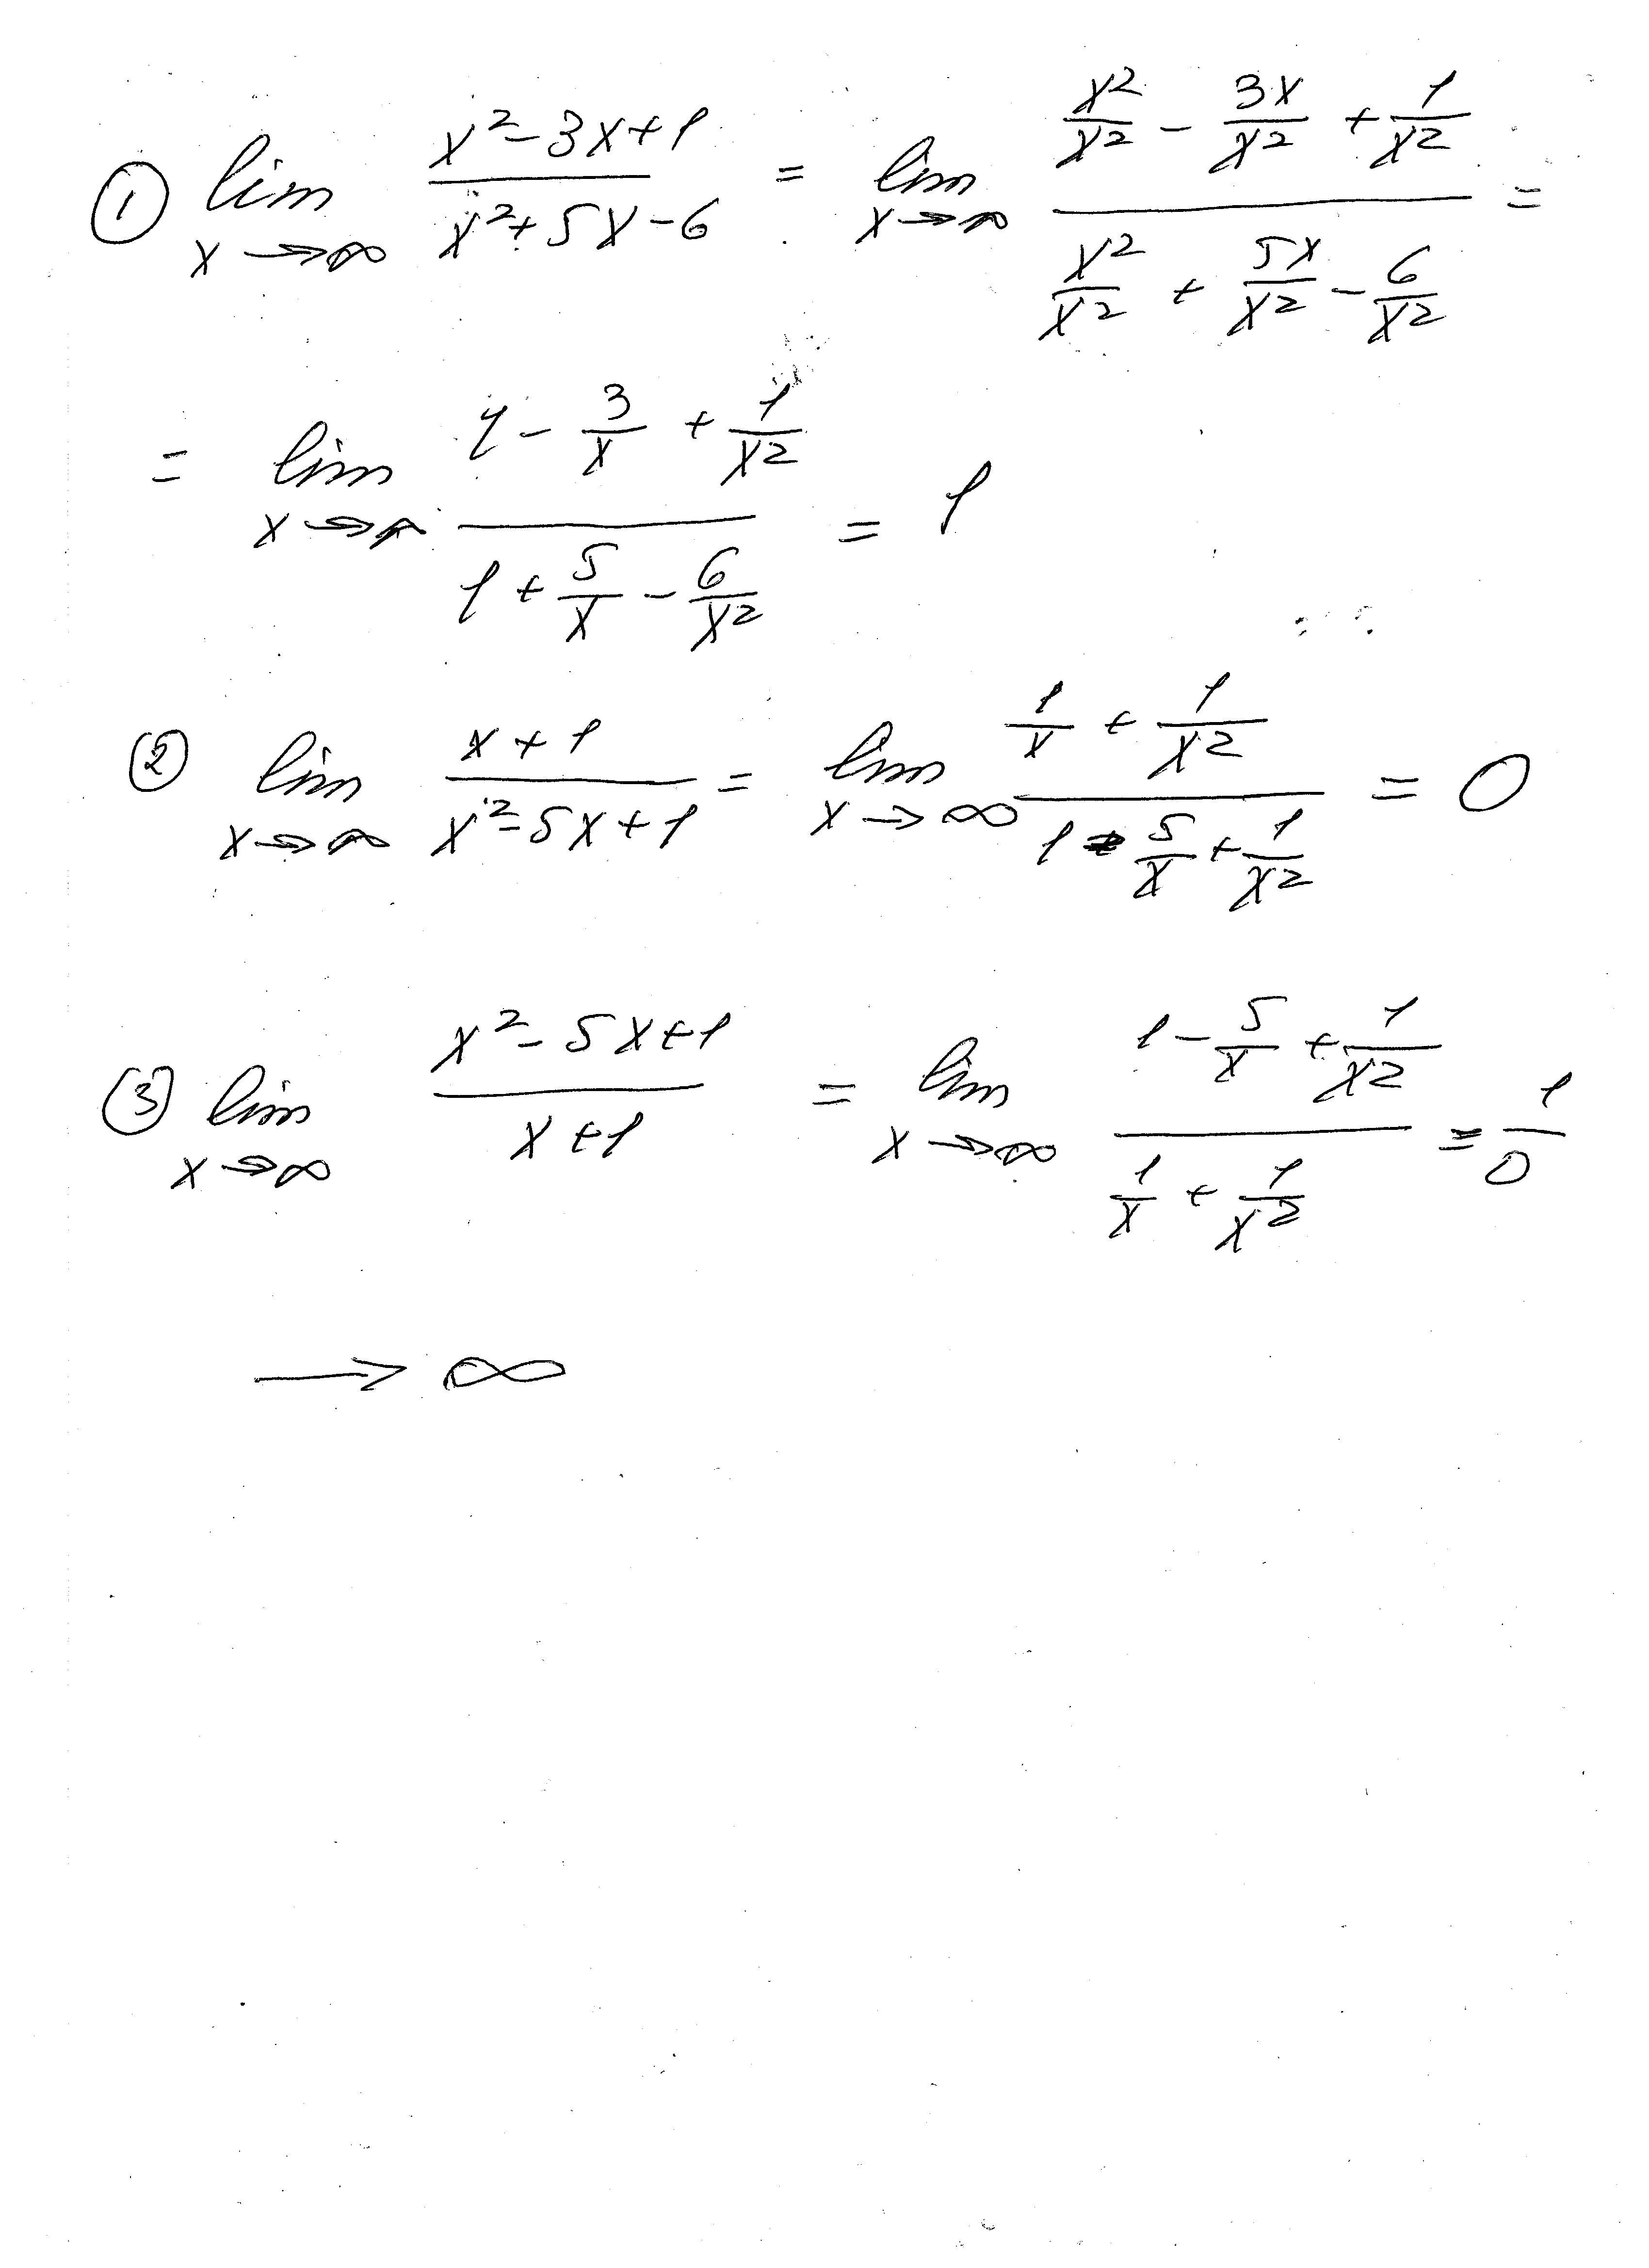 ① lim x→∞ (x² - 3x + 1)/(x² + 5x - 6) = lim x→∞ (x²/x² - 3x/x² + 1/x²)/(x²/x² + 5x/x² - 6/x²) =
= lim x→∞ (1 - 3/x + 1/x²)/(1 + 5/x - 6/x²) = 1
② lim x→∞ (x + 1)/(x² - 5x + 1) = lim x→∞ (1/x + 1/x²)/(1 - 5/x + 1/x²) = 0
③ lim x→∞ (x² - 5x + 1)/(x + 1) = lim x→∞ (1 - 5/x + 1/x²)/(1/x + 1/x²) = 1/0
→ ∞